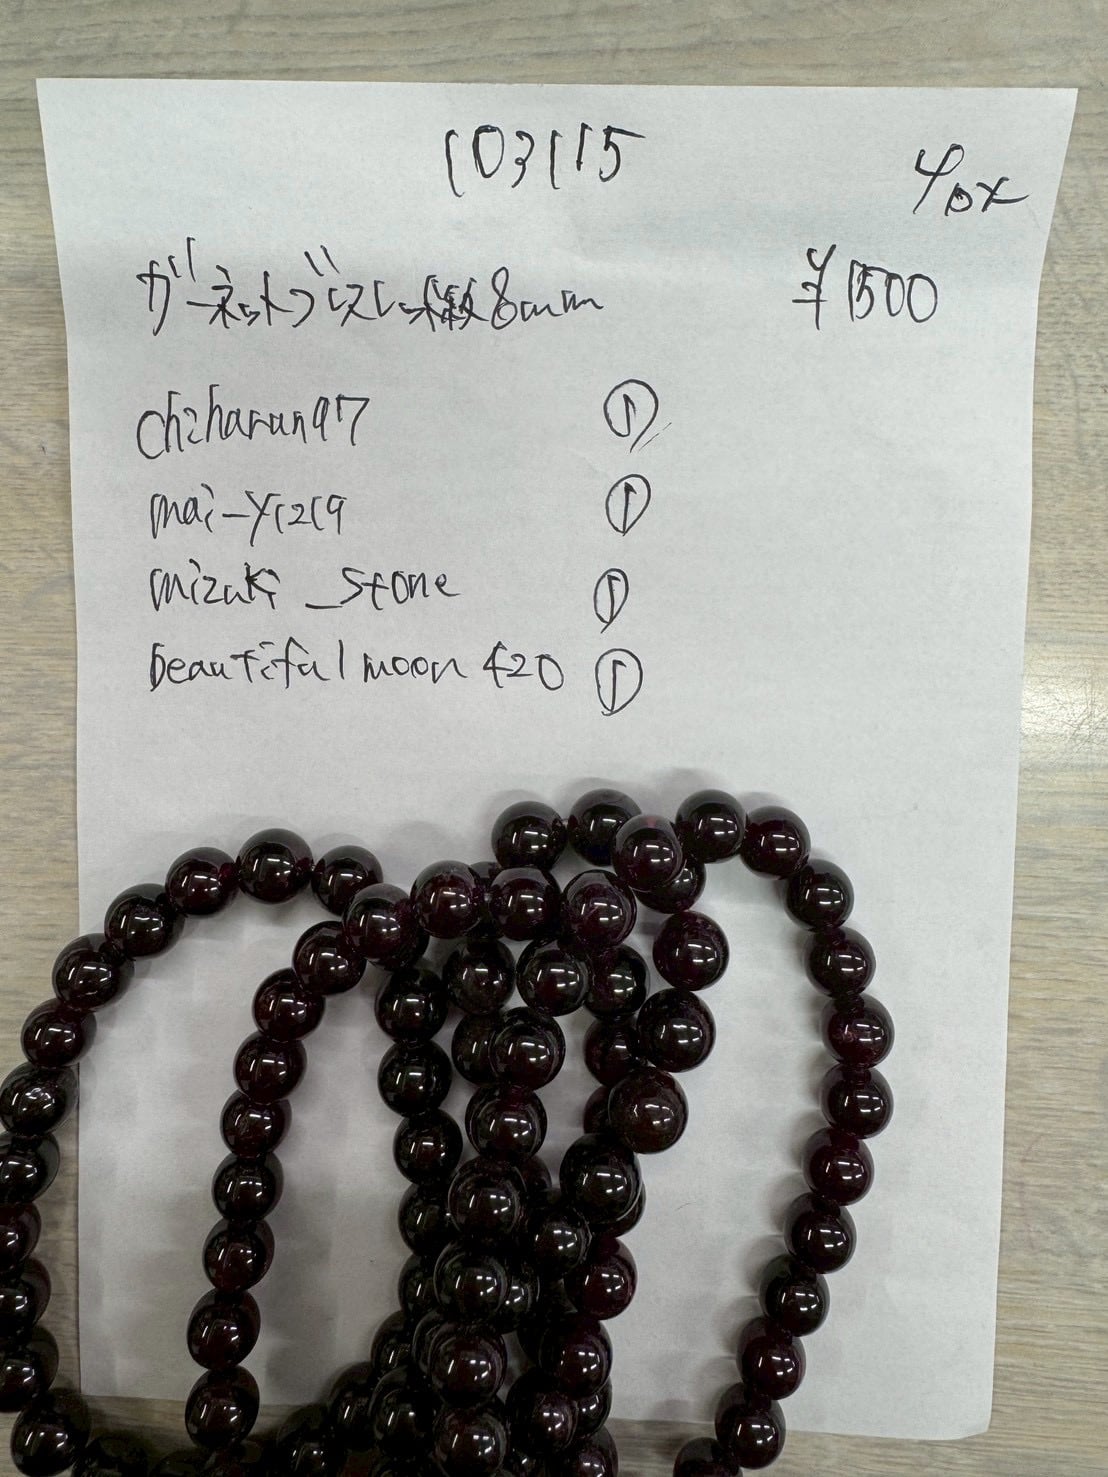 103115
4px
ガーネットブレスレット 8mm ¥1500
chiharun97 ①
mai-y1219 ①
mizuki_stone ①
beautifulmoon420 ①